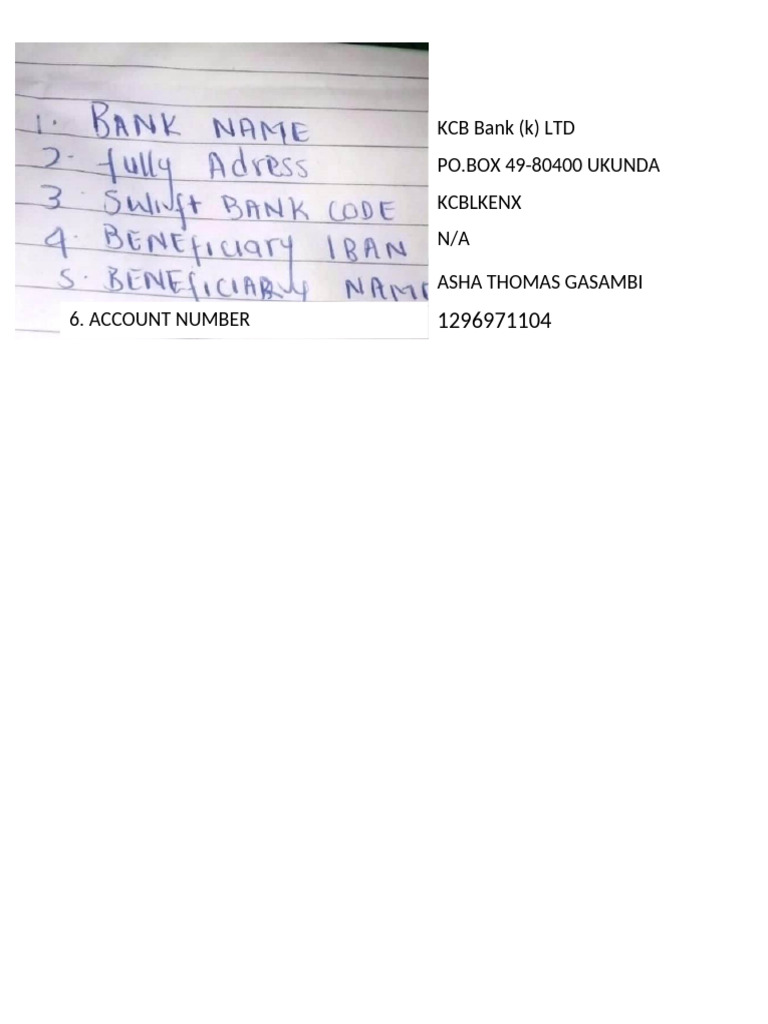 1. BANK NAME KCB Bank (k) LTD
2. fully Adress PO.BOX 49-80400 UKUNDA
3 Swift BANK CODE KCBLKENX
4. BENEficiary IBAN N/A
5. BENEfICIARY NAME ASHA THOMAS GASAMBI
6. ACCOUNT NUMBER 1296971104